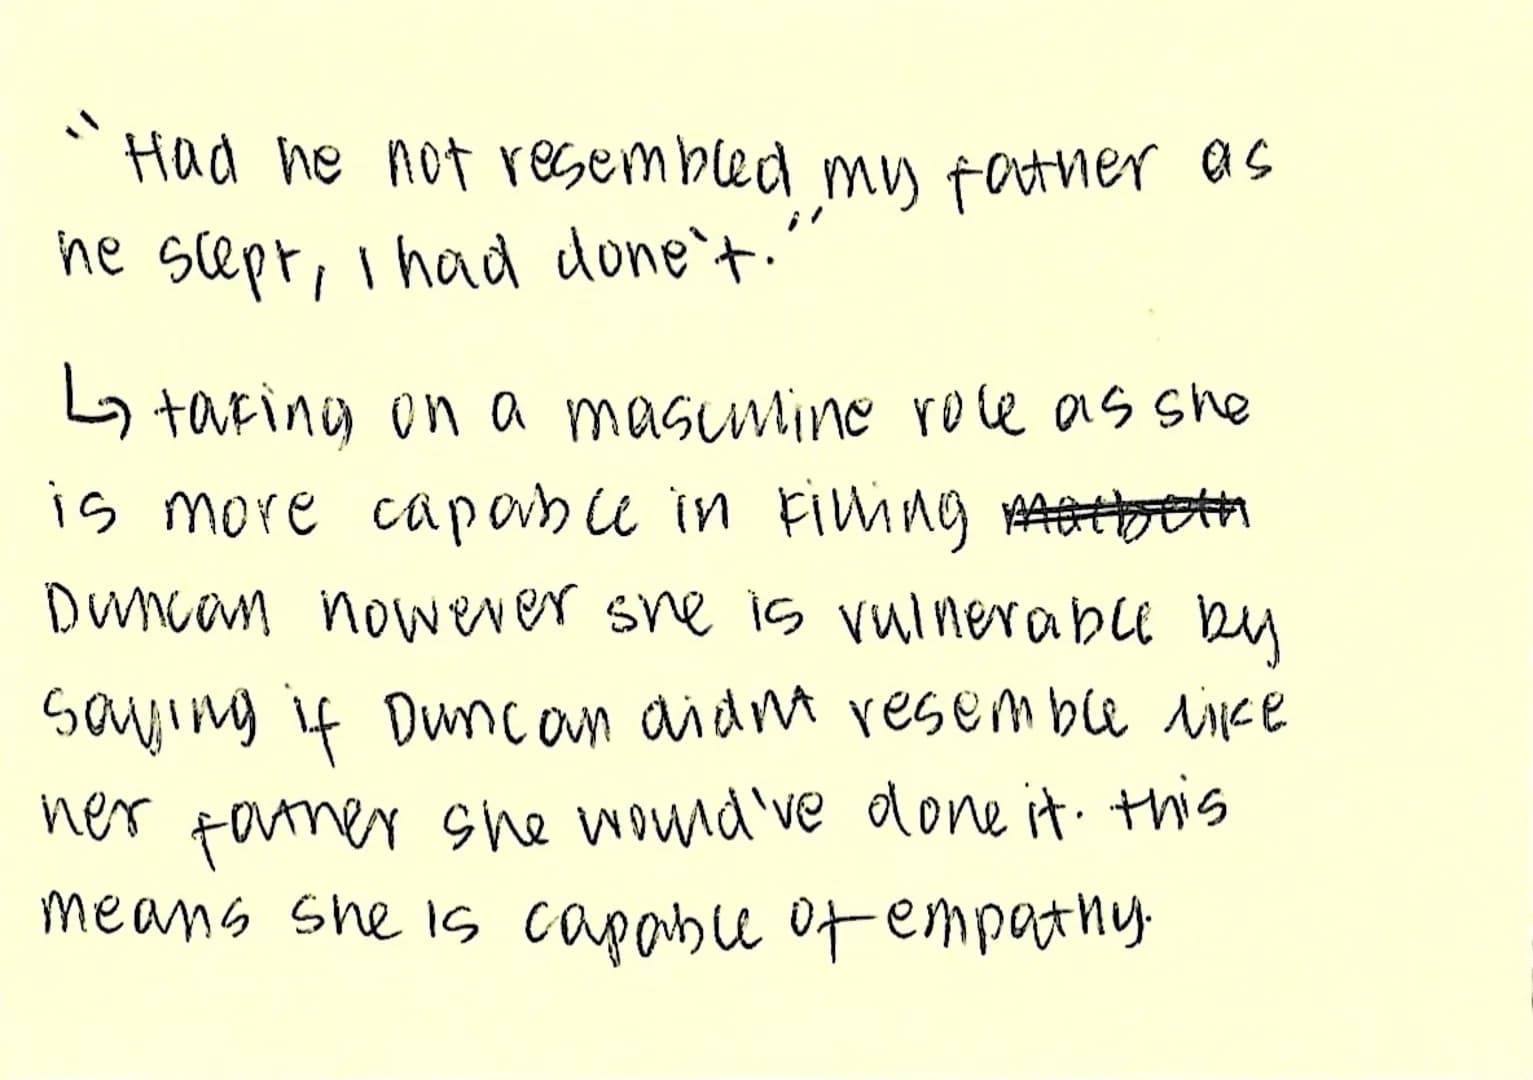 "Had he not resembled my father as
he slept, I had done't."
↳ taking on a masculine role as she
is more capable in killing ~~macbeth~~
Duncan however she is vulnerable by
saying if Duncan didnt resemble like
her father she would've done it. this
means she is capable of empathy.